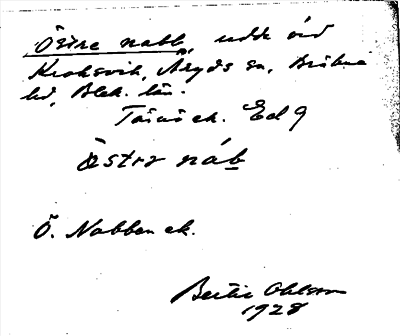 Östre nabb, udde vid
Kroksvik, Åryds sn, Bräkne
hd, Blek. län.
ek. Ed 9
Östrə náb
Ö. Nabben ek.
Bertil Ohlsson
1928